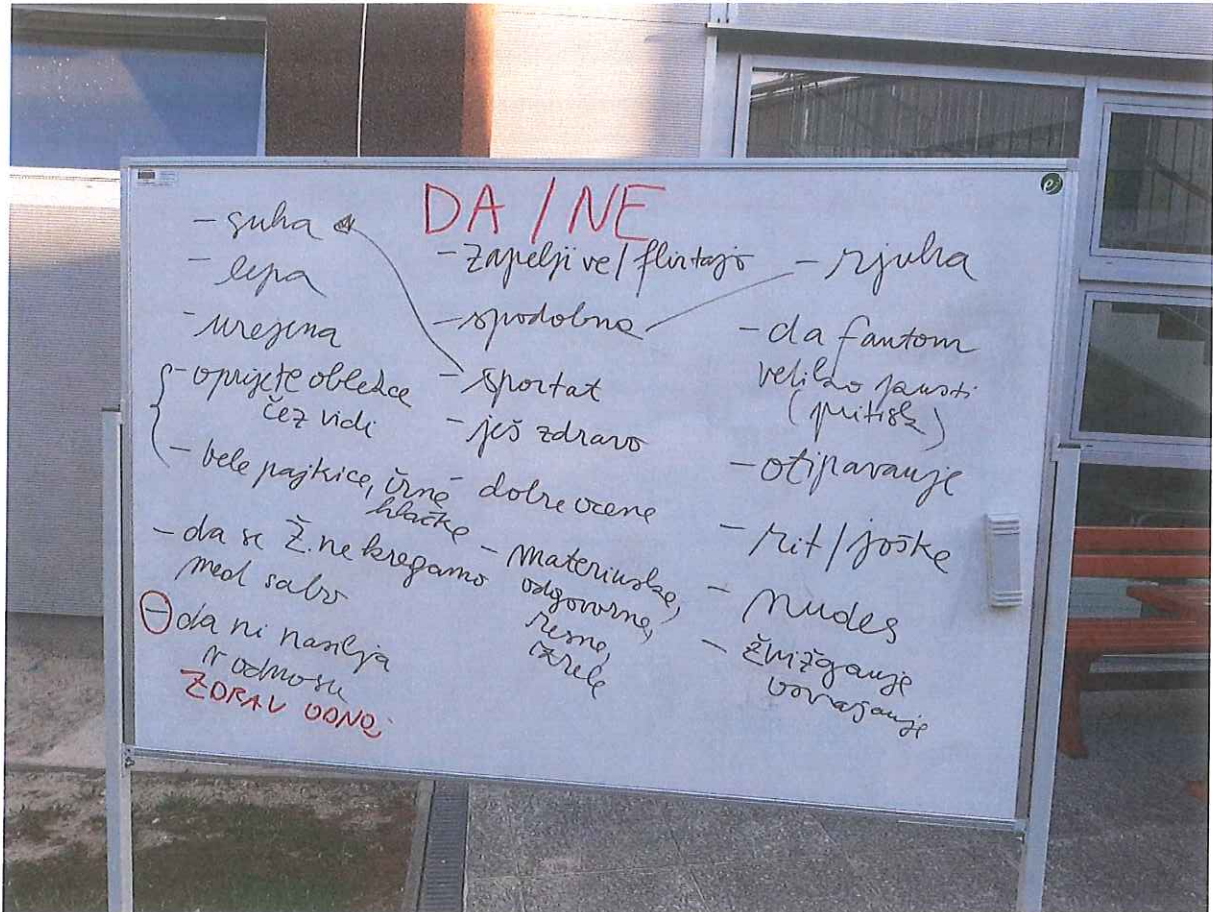 DA / NE
- suha
- lepa
- urejena
- oprijete obleke
čez vidi
- bele pajkice, črne
hlačke
- da se ž. ne kregamo
med sabo
- da ni nasilja
v odnosu
ZDRAV ODNO
- zapeljive / flirtajo
- spodobna
- športat
- ješ zdravo
- dobre ocene
- materinske,
odgovorne,
resne,
zrele
- rjuha
- da fantom
veliko pusti
(pritisk)
- otipavanje
- rit / joške
- nudes
- žvižganje